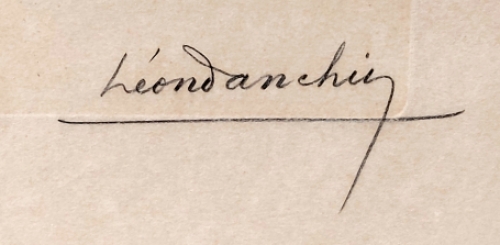 Léondanchin